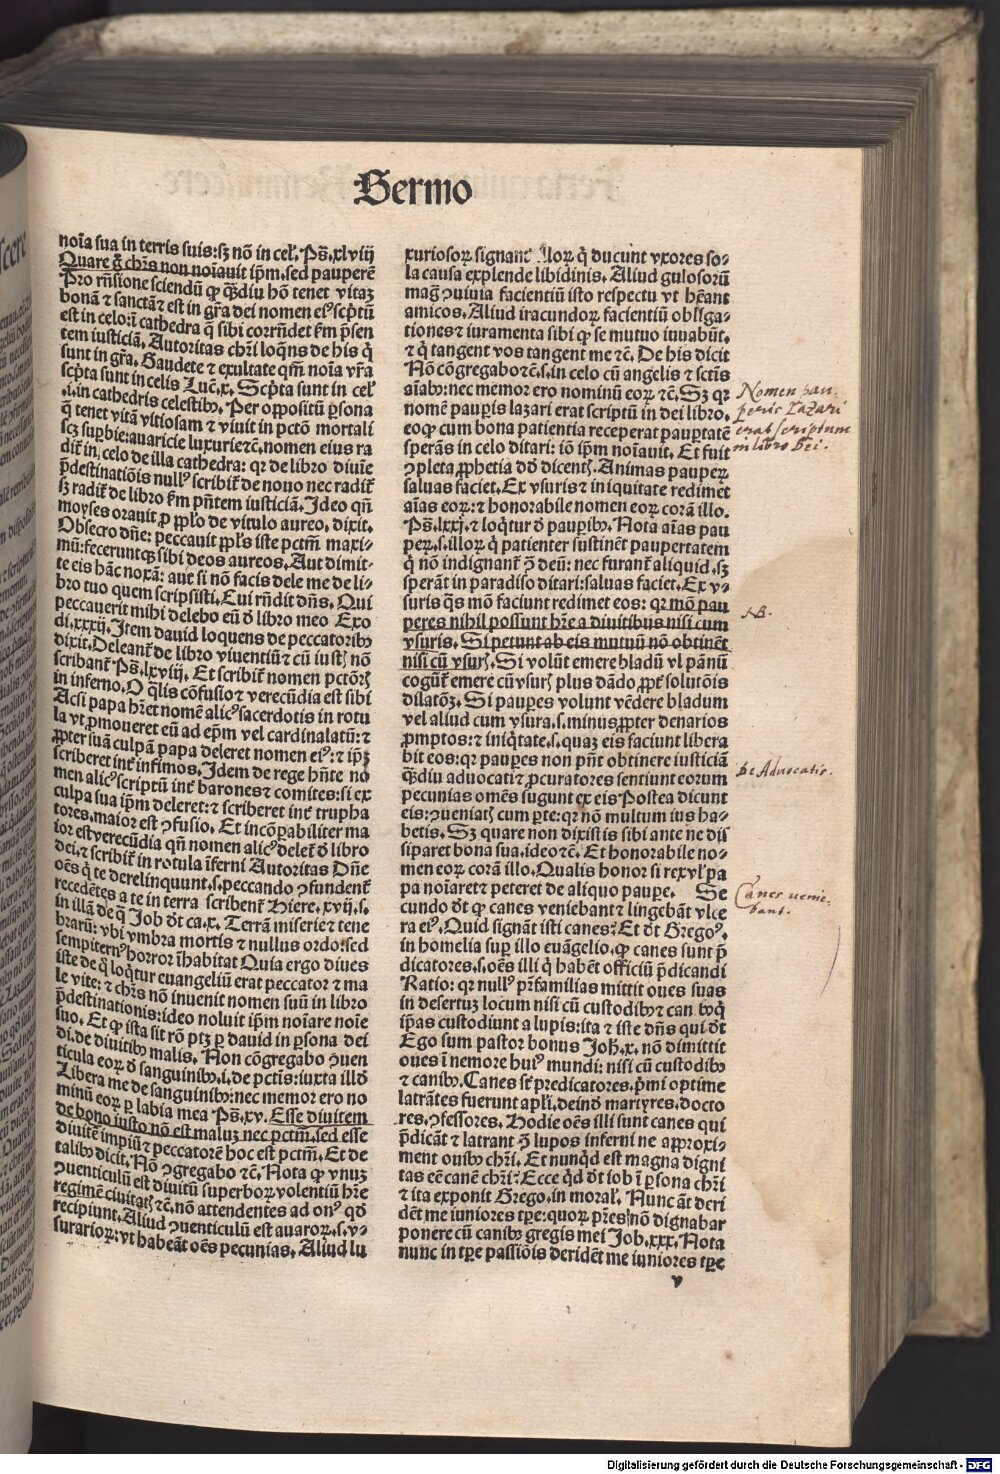 Sermo
noīa sua in terris suis:sꝫ nō in cel̕. Ps̄.xlviij
Quare ḡ chr̄s non noīauit ip̄m,sed pauperē
Pro rn̄sione sciendū ꝙ qȝdiu hō tenet vitaȝ
bonā ⁊ sanctā ⁊ est in gr̄a dei nomen ei⁹ scptū
est in celo:ī cathedra q̄ sibi corrn̄det ẜm p̄sen
tem iusticiā. Autoritas chr̄i loqn̄s de his q̇
sunt in gr̄a. Gaudete ⁊ exultate qm̄ noīa vr̄a
scpta sunt in celis Luc̄.x. Scpta sunt in cel̕
.i.in cathedris celestibꝰ. Per oppositū ꝑsona
q̄ tenet vitā vitiosam ⁊ viuit in pctō mortali
scꝫ supbie:auaricie luxurie⁊c̄.nomen eius ra
dit̄ in celo de illa cathedra: qꝛ de libro diuīe
p̄destinatiōis null⁹ scribit̄ de nouo nec radit̄
sꝫ radit̄ de libro ẜm pn̄tem iusticiā. Ideo qn̄
moyses orauit ꝓ pplo de vitulo aureo. dixit.
Obsecro dn̄e: peccauit ppls̄ iste pctm̄ maxi⸗
mū:feceruntqꝫ sibi deos aureos. Aut dimit⸗
te eis hāc noxā: aut si nō facis dele me de li⸗
bro tuo quem scripsisti. Cui rn̄dit dn̄s. Qui
peccauerit mihi delebo eū ď libro meo Exo
di.xxxij. Item dauid loquens de peccatoribꝰ
dixit. Deleant̄ de libro viuentiū ⁊ cū iustꝭ nō
scribant̄ Ps̄.lxviij. Et scribit̄ nomen pctōꝝ
in inferno. O q̄lis cōfusio ⁊ verecūdia est sibi
Acsi papa hr̄et nomē alic⁹ sacerdotis in rotu
la vt ꝓmoueret eū ad ep̄m vel cardinalatū: ⁊
ꝓpter suā culpā papa deleret nomen ei⁹: ⁊ ip̄ꝫ
scriberet int̄ infimos. Idem de rege hn̄te no
men alic⁹ scriptū int̄ barones ⁊ comites: si ex
culpa sua ip̄m deleret: ⁊ scriberet int̄ trupha
tores. maior est ꝯfusio. Et incōpabiliter ma
ior est verecūdia qn̄ nomen alic⁹ delet̄ ď libro
dei. ⁊ scribit̄ in rotula īferni Autoritas Dn̄e
oēs q̇ te derelinquunt.s.peccando ꝯfundent̄
recedētes a te in terra scribent̄ Hiere.xvij.s.
in illā de q̄ Job ďt ca.x. Terrā miserie ⁊ tene
brarū: vbi vmbra mortis ⁊ nullus ordo: sed
sempitern⁹ horror īhabitat Quia ergo diues
iste de q̇ loqt̄ur euangeliū erat peccator ⁊ ma
le vite: ⁊ chr̄s nō inuenit nomen suū in libro
p̄destinationis: ideo noluit ip̄m noīare noīe
suo. Et ꝙ ista sit rō ptꝫ ꝑ dauid in ꝑsona dei
di.de diuitibꝰ malis. Non cōgregabo ꝯuen
ticula eoꝝ ď sanguinibꝰ.i.de pctīs: iuxta illď
Libera me de sanguinibꝰ: nec memor ero no
minū eoꝝ ꝑ labia mea Ps̄.xv. Esse diuitem
de bono iusto nō est maluꝫ nec pctm̄.sed esse
diuitē impiū ⁊ peccatorē hoc est pctm̄. Et de
talibꝰ dicit. Nō ꝯgregabo ⁊c̄. Nota ꝙ vnuꝫ
ꝯuenticulū est diuitū superboꝝ volentiū hr̄e
regimē ciuitatꝭ ⁊c̄.nō attendentes ad on⁹ qď
recipiunt. Aliud ꝯuenticulū est auaroꝝ.s.v⸗
surarioꝝ: vt habeāt oēs pecunias. Aliud lu
xuriosoꝝ signant̄ illoꝝ q̇ ducunt vxores so⸗
la causa explende libidinis. Aliud gulosorū
mag̃ ꝯuiuia facientiū isto respectu vt hēant
amicos. Aliud iracundoꝝ facientiū obliga⸗
tiones ⁊ iuramenta sibi ꝙ se mutuo iuuabūt.
⁊ q̇ tangent vos tangent me ⁊c̄. De his dicit
Nō cōgregabo ⁊c̄.s.in celo cū angelis ⁊ sctīs
aīabꝰ: nec memor ero nominū eoꝝ ⁊c̄. Sꝫ qꝛ
nomē paupis lazari erat scriptū in dei libro.
eoꝙ cum bona patientia receperat pauptatē
sperās in celo ditari: iō ip̄m noīauit. Et fuit
ꝯpleta ꝓphetia dō dicentꝭ. Animas paupeꝝ
saluas faciet. Ex vsuris ⁊ iniquitate redimet
aīas eoꝝ: ⁊ honorabile nomen eoꝝ corā illo.
Ps̄.lxxj. ⁊ loqt̄ur ď paupibꝰ. Nota aīas pau
peꝝ.s.illoꝝ q̇ patienter sustinēt paupertatem
q̇ nō indignant̄ ꝯ deū: nec furant̄ aliquid. sꝫ
sperāt in paradiso ditari: saluas faciet. Ex v⸗
suris q̄s mō faciunt redimet eos: qꝛ mō pau
peres nihil possunt hr̄e a diuitibus nisi cum
vsuris. Si petunt ab eis mutuū nō obtinēt
nisi cū vsurꝭ. Si volūt emere bladū vl pānū
cogūt̄ emere cū vsurꝭ plus dādo ꝓpt̄ solutōis
dilatōꝫ. Si paupes volunt vēdere bladum
vel aliud cum vsura.s.minus ꝓpter denarios
ꝓmptos: ⁊ iniq̇tate.s.quaꝫ eis faciunt libera
bit eos: qꝛ paupes non pn̄t obtinere iusticiā
qȝdiu aduocati ⁊ ꝓcuratores sentiunt eorum
pecunias omēs sugunt ex eis Postea dicunt
eis: ꝯueniatꝭ cum pte: qꝛ nō multum ius ha⸗
betis. Sꝫ quare non dixistis sibi ante ne dis
siparet bona sua. ideo ⁊c̄. Et honorabile no⸗
men eoꝝ corā illo. Qualis honor si rex vl̕ pa
pa noīaret ⁊ peteret de aliquo paupe. Se
cundo ďt ꝙ canes veniebant ⁊ lingebāt vlce
ra ei⁹. Quid signāt isti canes? Et ďt Grego⁹.
in homelia sup illo euāgelio. ꝙ canes sunt p̄
dicatores.s.oēs illi q̇ habēt officiū p̄dicandi
Ratio: qꝛ null⁹ pr̄familias mittit oues suas
in desertuꝫ locum nisi cū custodibꝰ ⁊ canibꝰ q̇
ip̄as custodiunt a lupis: ita ⁊ iste dn̄s qui ďt
Ego sum pastor bonus Joh̄.x. nō dimittit
oues ī nemore hui⁹ mundi: nisi cū custodibꝰ
⁊ canibꝰ. Canes st̄ predicatores. p̄mi optime
latrātes fuerunt apl̄i. deinď martyres. docto
res. ꝯfessores. Hodie oēs illi sunt canes qui
p̄dicāt ⁊ latrant ꝯ lupos inferni ne approxi⸗
ment ouibꝰ chr̄i. Et nunqď est magna digni
tas eē canē chr̄i? Ecce qď ďt iob ī ꝑsona chr̄i
⁊ ita exponit Grego.in moral̕. Nunc āt deri
dēt me iuniores tꝑe: quoꝝ pr̄es nō dignabar
ponere cū canibꝰ gregis mei Job.xxx. Nota
nunc in tꝑe passiōis deridēt me iuniores tꝑe
v
Nomen pau⸗
peris Lazari
erat scriptum
in libro Dei.
NB.
De Aduocatis.
Canes uenie⸗
bant.
Digitalisierung gefördert durch die Deutsche Forschungsgemeinschaft - DFG